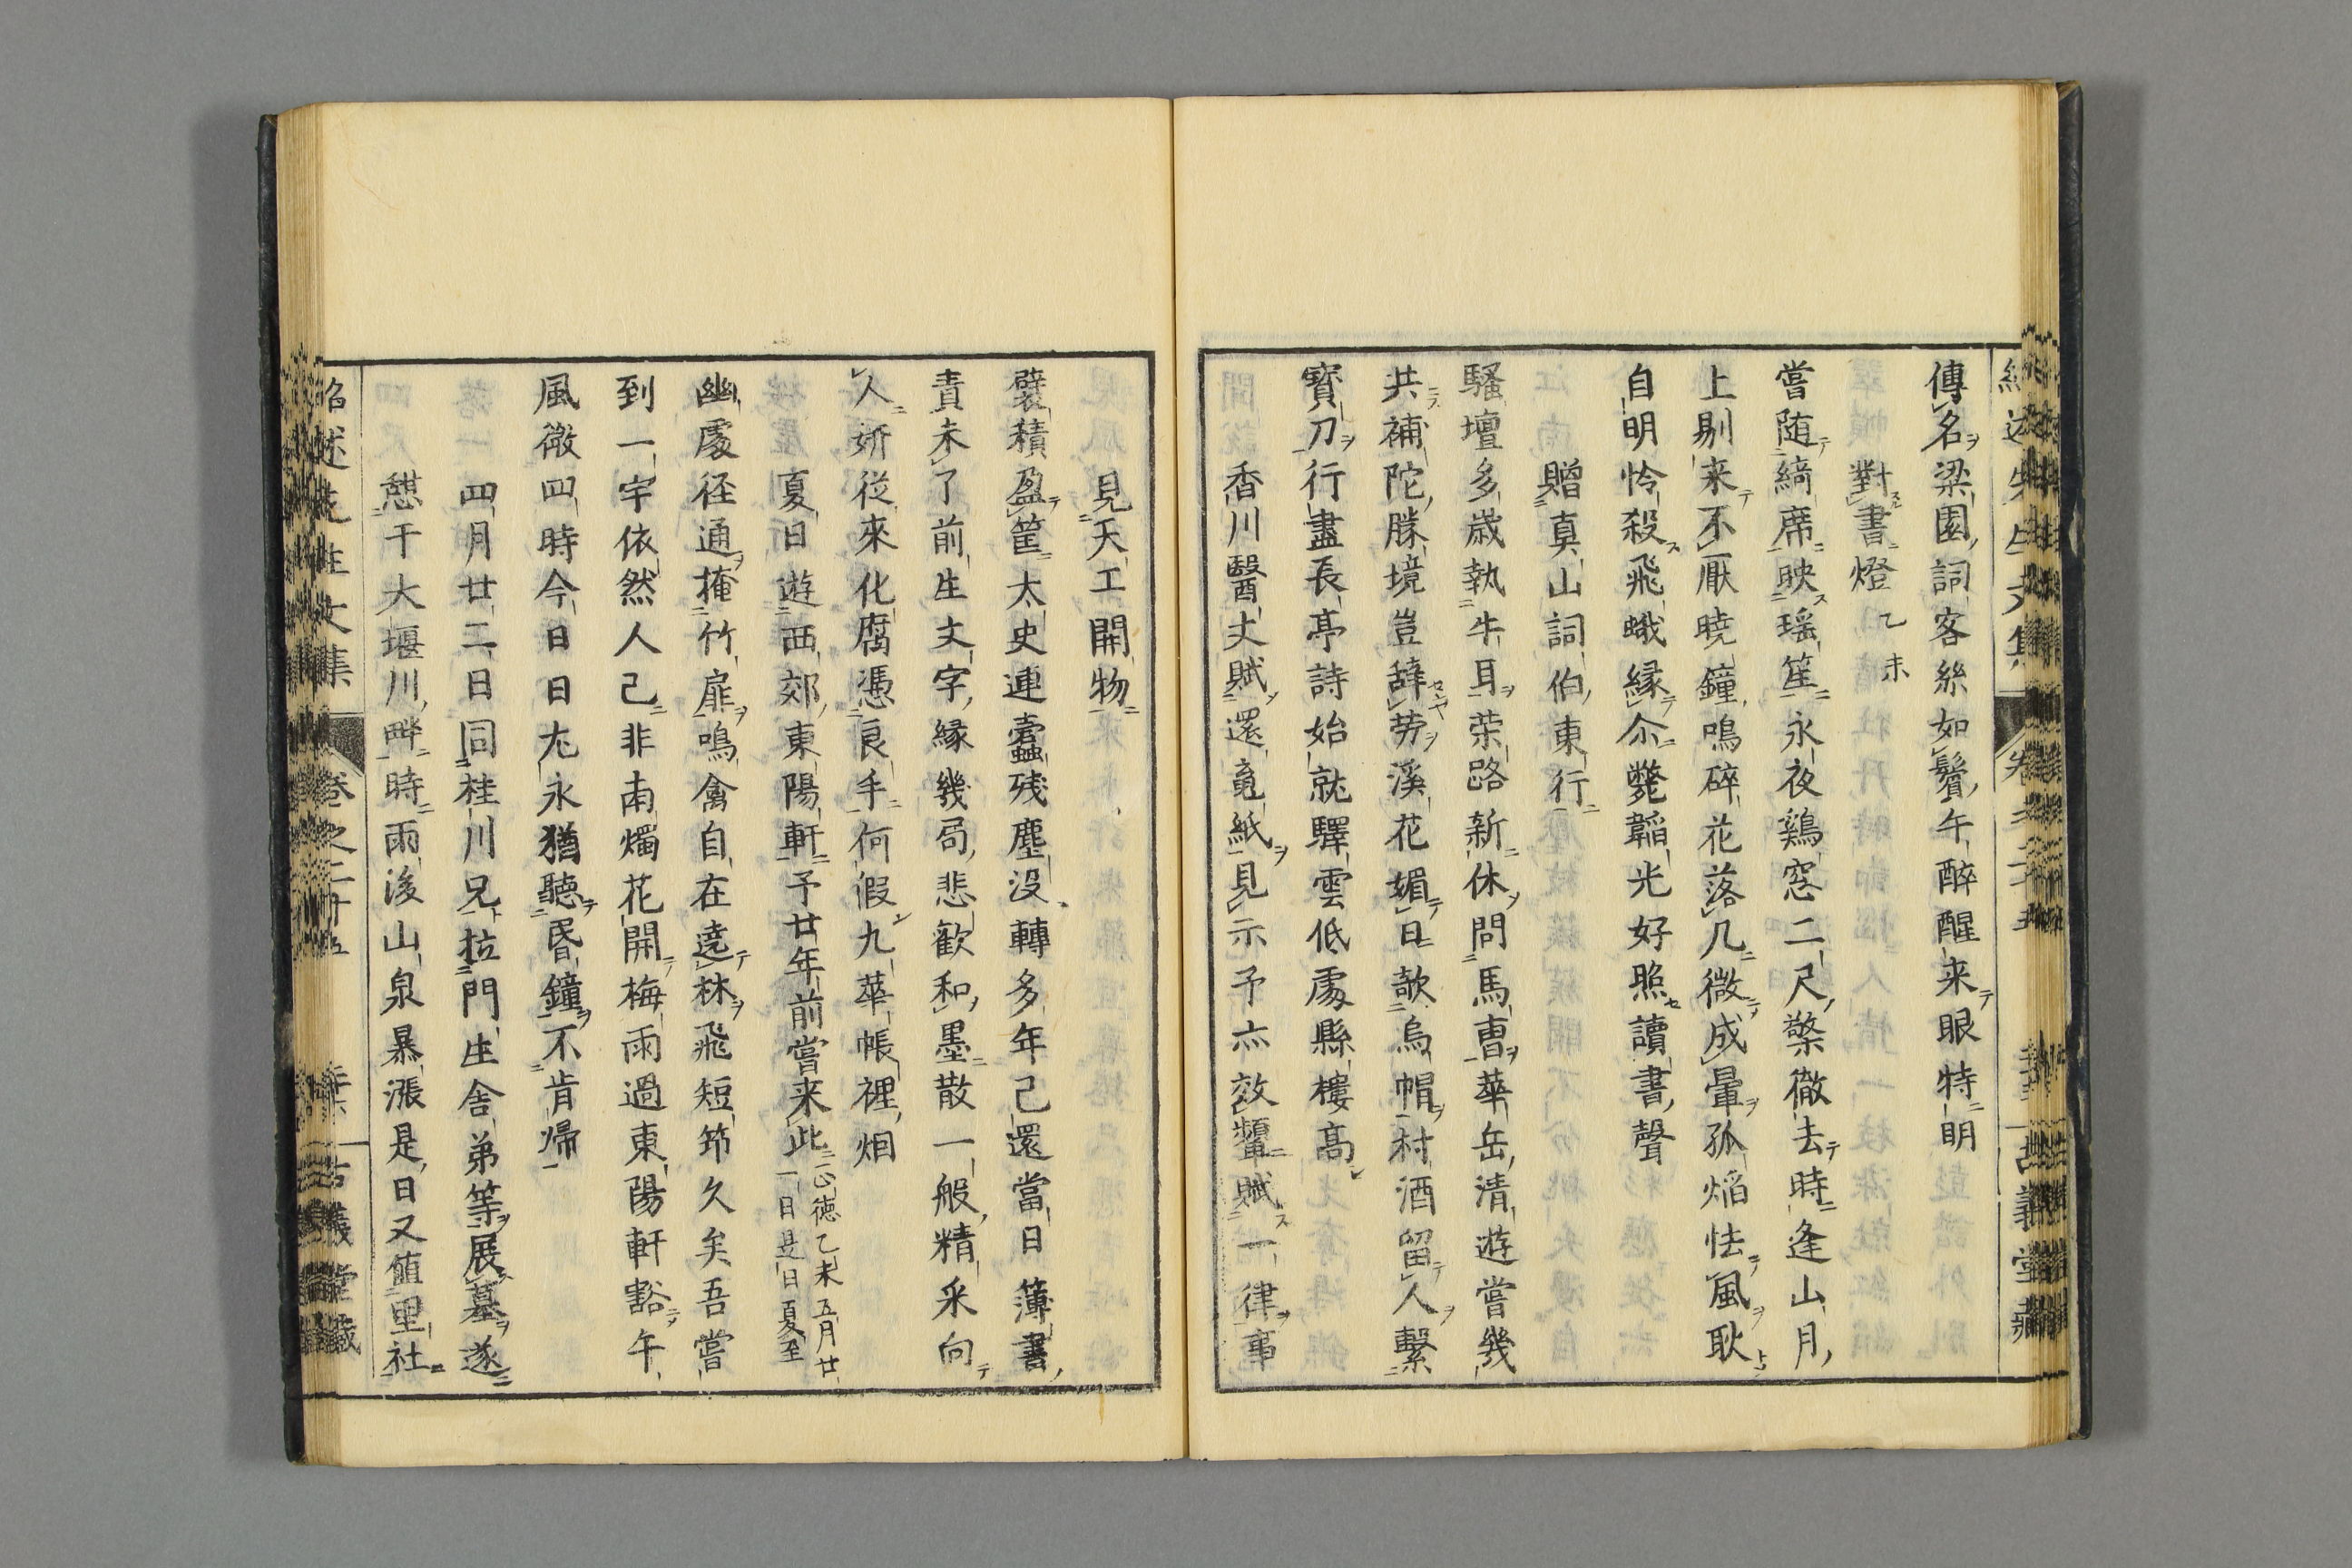 傳名梁園詞客絲如鬢午醉醒来眼特明
對書燈乙未
嘗随綺席映瑶笙永夜鷄窓二尺檠徹去時逢山月
上剔来不厭曉鐘鳴碎花落几微成暈孤焔怯風耿
自明怜殺飛蛾縁尒斃韜光好照讀書聲
贈真山詞伯東行
騷壇多歳執牛耳荣路新休問馬曹華岳清遊嘗幾
共補陀勝境豈辭劳溪花媚日欹烏帽村酒留人繫
寳刀行盡長亭詩始就驛雲低處縣樓高
香川醫丈賦還竟紙見示予亦效顰賦一律事
見天工開物
襞積盈筐太史連蠹残塵没轉多年己還當日簿書
責未了前生文字縁幾局悲歓和墨散一般精采向
人妍從來化腐憑良手何假九華帳裡烟
夏日遊西郊東陽軒予廿年前嘗来此正徳乙未五月廿
一日是日夏至
幽處径通掩竹扉鳴禽自在遶林飛短筇久矣吾嘗
到一宇依然人己非南燭花開梅雨過東陽軒豁午
風微四時今日日尤永猶聴昏鐘不肯帰
四月廿二日同桂川兄拉門生舎弟等展墓遂
憩于大堰川畔時雨後山泉暴漲是日又値里社
紹述先生文集
卷之二十五
古義堂藏